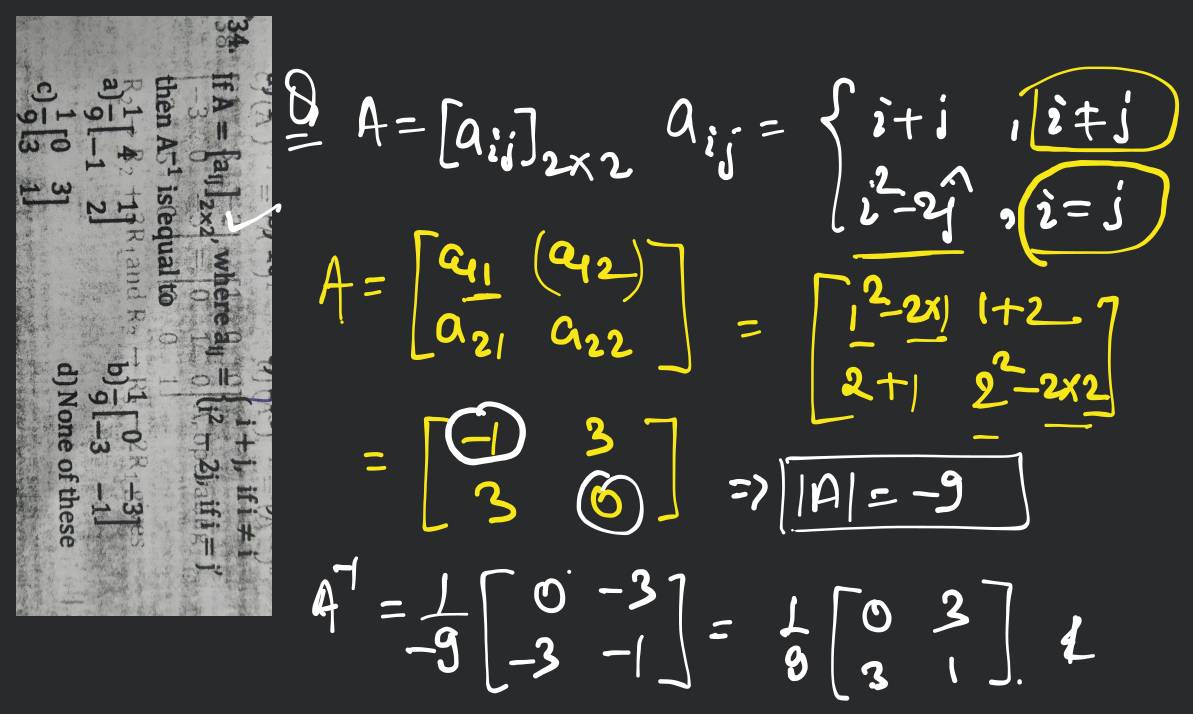 34. If A = [aij]2×2, where aij = { i + j, if i ≠ j
i² − 2j, if i = j'
then A⁻¹ is equal to
a) 1/9 [4 1; −1 2] b) 1/9 [0 −3; −3 −1]
c) 1/9 [0 3; 3 1] d) None of these
Q A = [aij]2×2 aij = { i+j , i≠j
i²−2j , i=j
A = [a11 (a12)
a21 a22] = [1²−2×1 1+2
2+1 2²−2×2]
= [−1 3
3 0] => |A| = −9
A⁻¹ = 1/−9 [0 −3
−3 −1] = 1/9 [0 3
3 1].